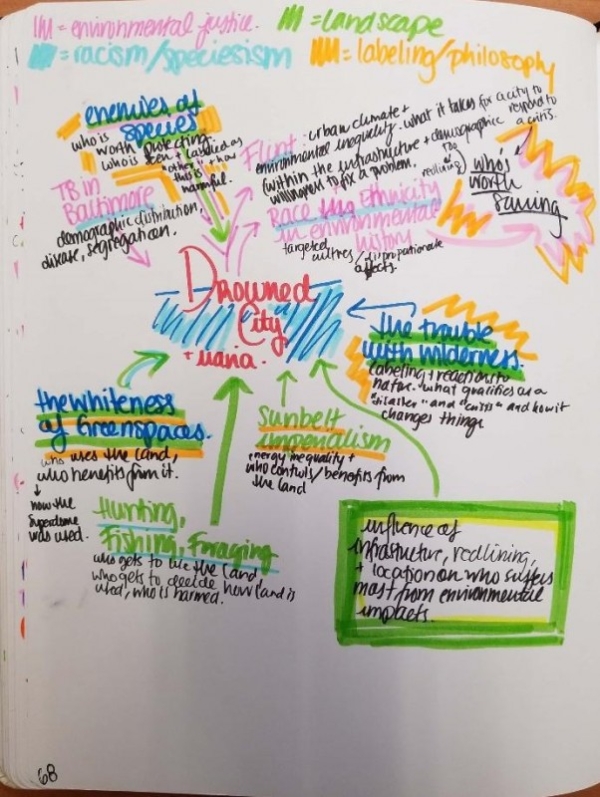 = environmental justice.
= landscape
= racism/speciesism
= labeling/philosophy
enemies of
species
who is
worth protecting.
who is seen + labeled as
"other" + how
this is
harmful.
TB in
Baltimore
demographic distribution,
disease, segregation.
Flint
: urban climate +
environmental inequality. what it takes for a city to
respond to
a crisis.
(within the infrastructure + demographic
willingness to fix a problem.
redlining)
Race and Ethnicity
in environmental
history
targeted
cultures / disproportionate
affects.
who's
worth
saving
Drowned
City
+ maria.
the trouble
with wilderness.
labeling + reaction to
nature. what qualifies as a
"disaster" and "crisis" and how it
changes things
the whiteness
of Greenspaces.
who uses the land,
who benefits from it.
how the
Superdome
was used.
Sunbelt
imperialism
energy inequality +
who controls/benefits from
the land
Hunting,
Fishing, Foraging
who gets to use the land,
who gets to decide how land is
used, who is harmed.
influence of
infrastructure, redlining,
+ location on who suffers
most from environmental
impacts.
68